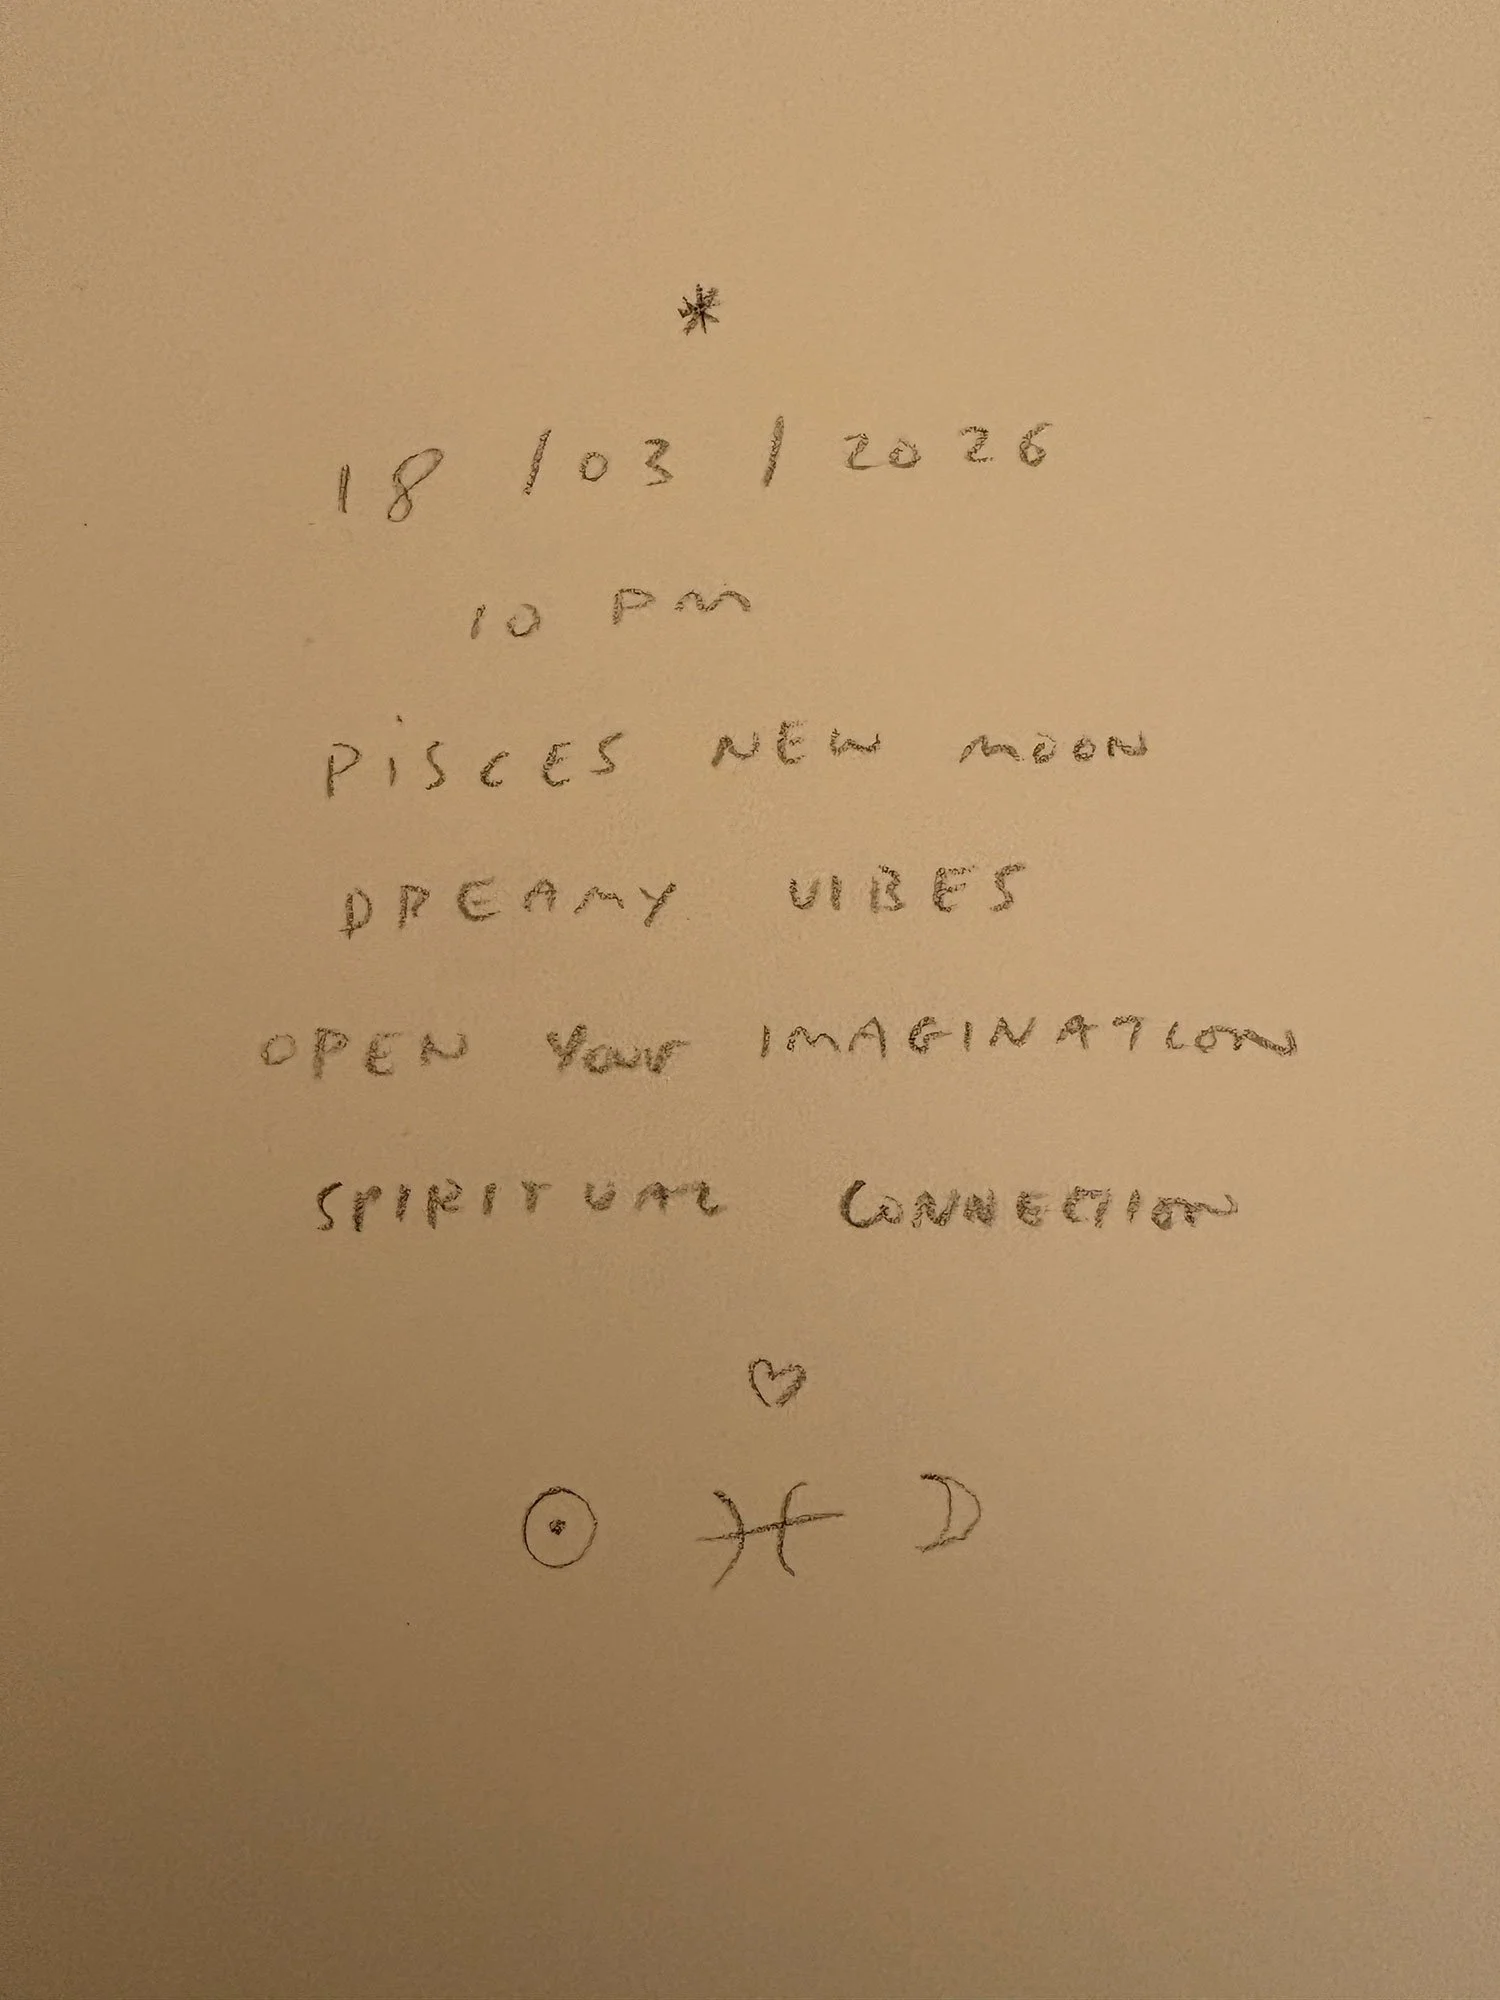 *
18 / 03 / 2026
10 PM
PiSCES NEW MOON
DREAMY VIBES
OPEN YOUR IMAGINATION
SPIRITUAL CONNECTION
♡
☉ ♓ ☽